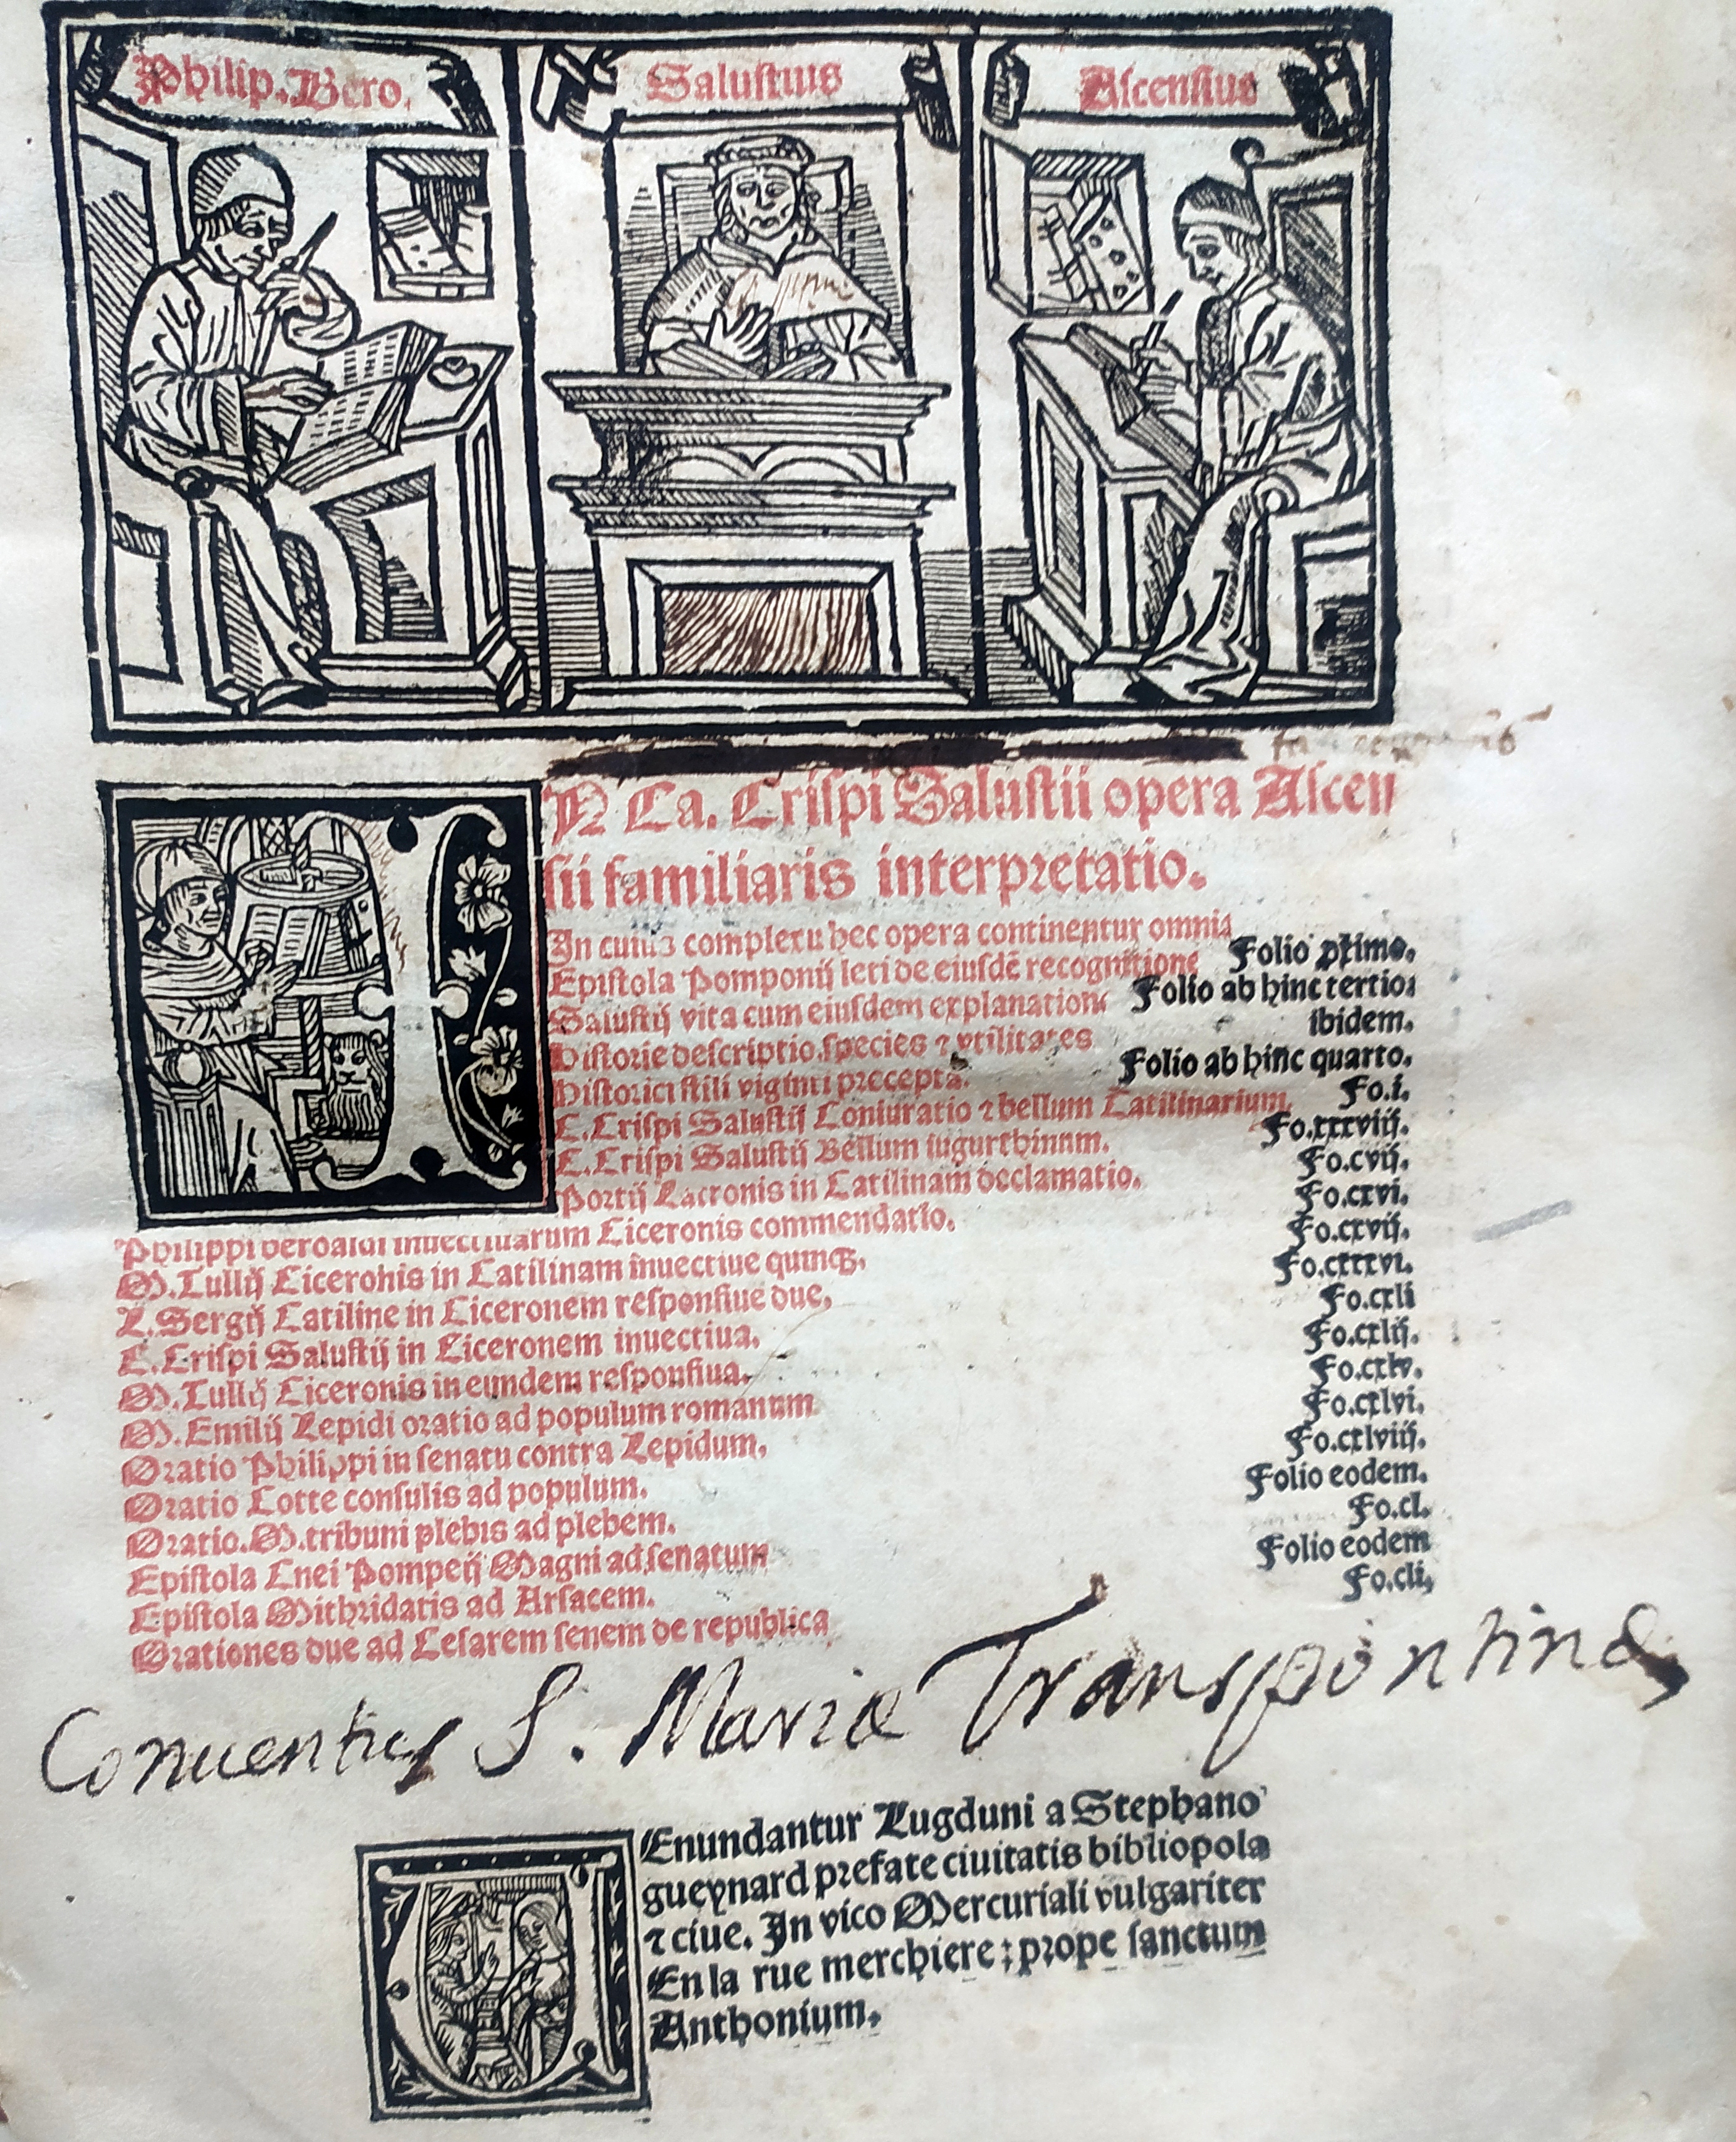 Philip. Bero.
Salustius
Ascensius
IN Ca. Crispi Salustii opera Ascen
sii familiaris interpretatio.
In cuius complexu hec opera continentur omnia
Epistola Pomponij leti de eiusdē recognitione Folio primo.
Salustij vita cum eiusdem explanatione Folio ab hinc tertio.
Historie descriptio. species ⁊ vtilitates ibidem.
Historici stili viginti precepta. Folio ab hinc quarto.
C. Crispi Salustij Coniuratio ⁊ bellum Catilinarium. Fo.i.
C. Crispi Salustij Bellum iugurthinum. Fo.xxxviij.
Portij Latronis in Catilinam declamatio. Fo.cvij.
Philippi beroaldi inuectiuarum Ciceronis commendatio. Fo.cxvi.
M. Tullij Ciceronis in Catilinam inuectiue quinqꝫ. Fo.cxvij.
L. Sergij Catiline in Ciceronem responsiue due. Fo.cxxxvi.
C. Crispi Salustij in Ciceronem inuectiua. Fo.cxli
M. Tullij Ciceronis in eundem responsiua. Fo.cxlij.
M. Emilij Lepidi oratio ad populum romanum Fo.cxlv.
Oratio Philippi in senatu contra Lepidum. Fo.cxlvi.
Oratio Cotte consulis ad populum. Fo.cxlviij.
Oratio. M. tribuni plebis ad plebem. Folio eodem.
Epistola Cnei Pompeij Magni ad senatum Fo.cl.
Epistola Mithridatis ad Arsacem. Folio eodem
Orationes due ad Cesarem senem de republica Fo.cli.
Conuentus S. Mariæ Transpontinæ
VEnundantur Lugduni a Stephano
gueynard prefate ciuitatis bibliopola
⁊ ciue. In vico Mercuriali vulgariter
En la rue merchiere: prope sanctum
Anthonium.